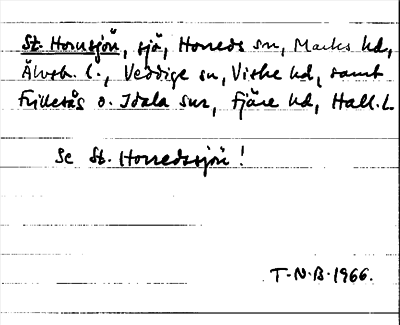 St. Hornsjön, sjö, Horreds sn, Marks hd,
Älvsb. l., Veddige sn, Viske hd, samt
Frillesås o. Idala snr, Fjäre hd, Hall. l.
Se St. Horredssjön!
T-N.B.1966.